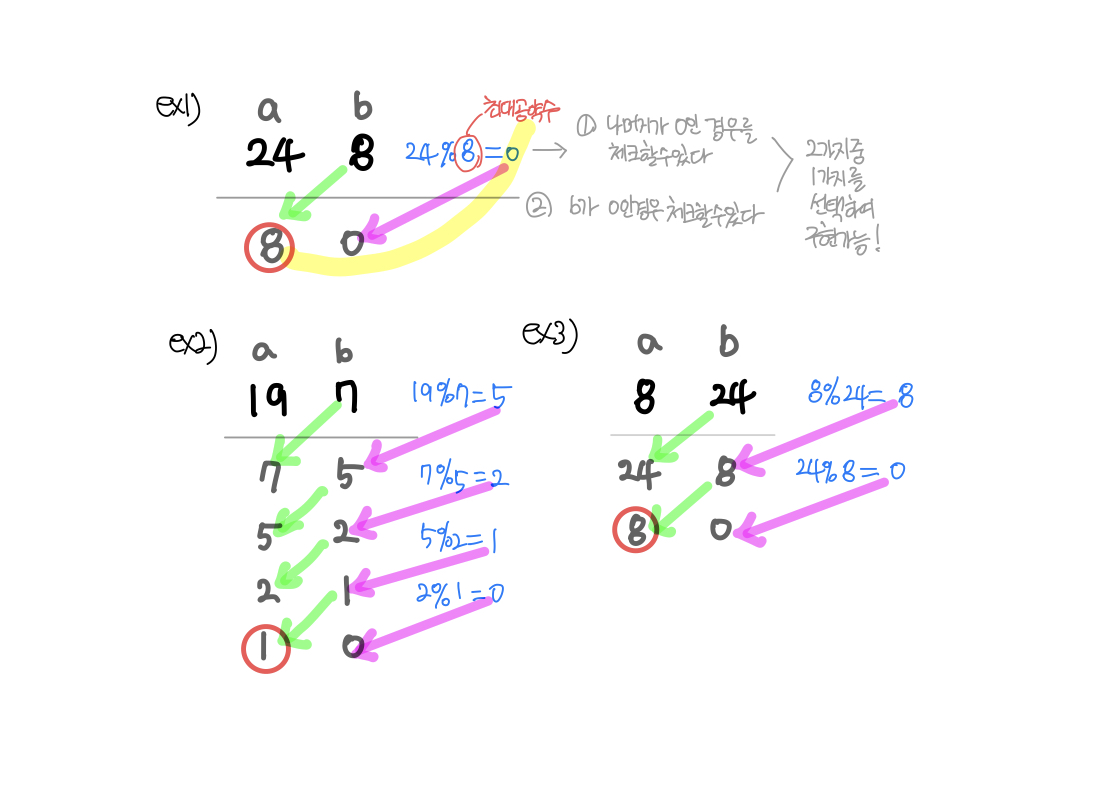 ex1)
a b
24 8 24%8=0
최대공약수
8 0
→ ① 나머지가 0인 경우를
체크할수있다
② b가 0인경우 체크할수있다
2가지중
1가지를
선택하여
구현가능!
ex2)
a b
19 7 19%7=5
7 5 7%5=2
5 2 5%2=1
2 1 2%1=0
1 0
ex3)
a b
8 24 8%24=8
24 8 24%8=0
8 0